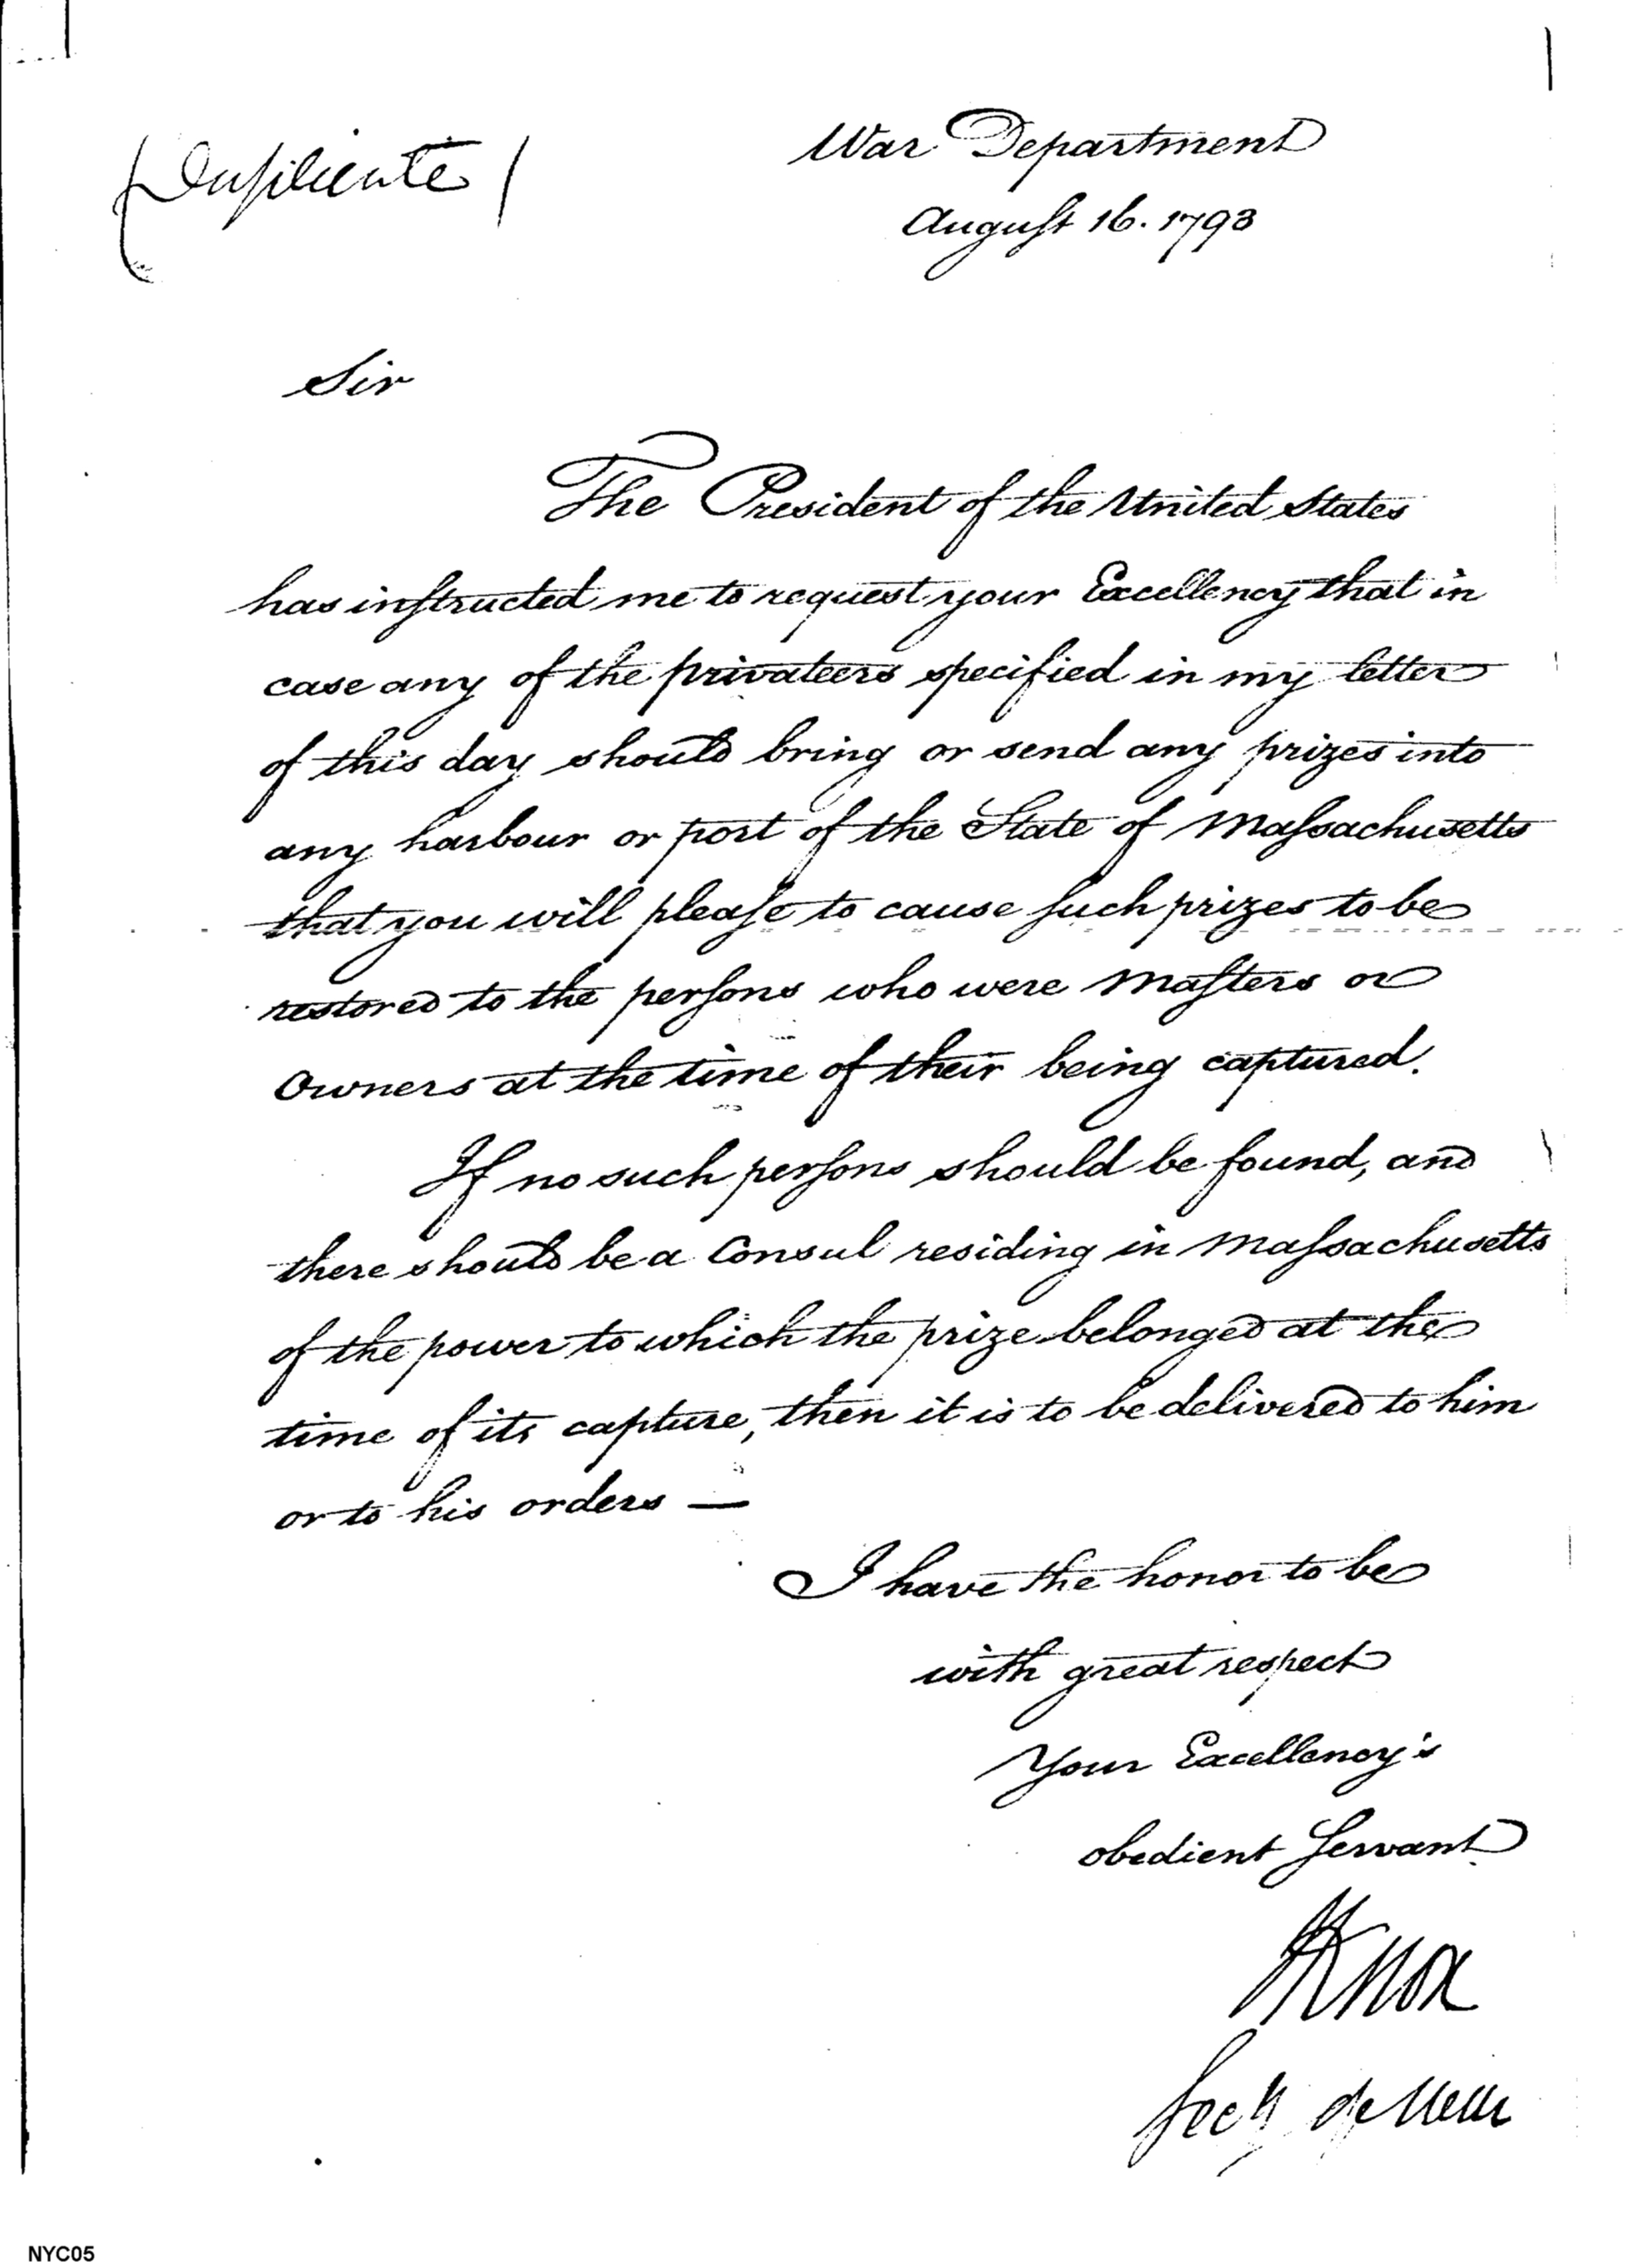 (Duplicate)
War Department
August 16. 1793
Sir
The President of the United States
has instructed me to request your Excellency that in
case any of the privateers specified in my letter
of this day should bring or send any prizes into
any harbour or port of the State of Massachusetts
that you will please to cause such prizes to be
restored to the persons who were Masters or
Owners at the time of their being captured.
If no such persons should be found, and
there should be a Consul residing in Massachusetts
of the power to which the prize belonged at the
time of its capture, then it is to be delivered to him
or to his orders —
I have the honor to be
with great respect
Your Excellency's
obedient Servant
HKnox
Secy of War
NYC05